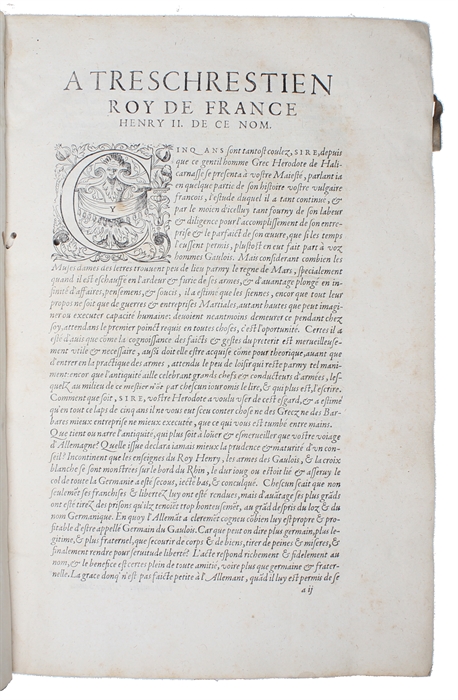 A TRESCHRESTIEN
ROY DE FRANCE
HENRY II. DE CE NOM.
CINQ ANS sont tantost coulez, SIRE, depuis
que ce gentilhomme Grec Herodote de Hali-
carnasse se presenta à vostre Maiesté, parlant ia
en quelque partie de son histoire vostre vulgaire
francois, l'estude duquel il a tant continué, &
par le moien d'icelluy tant fourny de son labeur
& diligence pour l'accomplissement de son entre-
prise & le parfaict de son œuvre, que si les temps
l'eussent permis, plustost en eut fait part à voz
hommes Gaulois. Mais considerant combien les
Muses dames des letres trouvent peu de lieu parmy le regne de Mars, specialement
quand il est eschauffé en l'ardeur & furie de ses armes, & d'avantage plongé en in-
finité d'affaires, pensemens, & soucis, il a estimé que les siennes, encor que tout leur
propos ne soit que de guerres & entreprises Martiales, autant hautes que peut imagi-
ner ou executer capacité humaine: devoient neantmoins demeurer ce pendant chez
soy, attendent le premier poinct requis en toutes choses, c'est l'oportunité. Certes il a
esté d'avis que côme la cognoissance des faicts & gestes du preterit est merveilleuse-
ment utile & necessaire, aussi doit elle estre acquise côme pour theorique, avant que
d'entrer en la practique des armes, attendu le peu de loisir qui reste parmy tel mani-
ment: encor que l'antiquité aille celebrant grands chefs & conducteurs d'armées, les-
quelz au milieu de ce mestier n'ôt par chescun iour omis le lire, & qui plus est, l'escrire.
Comment que soit, SIRE, vostre Herodote a voulu user de cest esgard, & a estimé
qu'en tout ce laps de cinq ans il ne vous eut sceu conter chose ne des Grecz ne des Bar-
bares mieux entreprise ne mieux executée, que ce qui vous est tumbé entre mains.
Que tient ou narre l'antiquité, qui plus soit à louer & esmerveiller que vostre voiage
d'Allemagne? Quelle issue declara iamais mieux la prudence & maturité d'un con-
seil? Incontinent que les enseignes du Roy Henry, les armes des Gaulois, & la croix
blanche se sont monstrées sur le bord du Rhin, le dur ioug ou estoit lié & asseruy le
col de toute la Germanie a esté secous, iecté bas, & conculqué. Chescun scait que non
seulemêt ses franchises & libertez luy ont esté rendues, mais d'auâtage ses plus grâds
ont esté tirez des prisons qu'ilz tenoiêt trop honteusemêt, au grâd despris du loz & du
nom Germanique. En quoy l'Allemât a cleremêt cogneu côbien luy est propre & pro-
fitable d'estre appellé Germain du Gaulois. Car que peut on dire plus germain, plus le-
gitime, & plus fraternel, que secourir de corps & de biens, tirer de peines & miseres, &
& finalement rendre pour seruitude liberté? L'acte respond richement & fidelement au
nom, & le benefice est certes plein de toute amitié, voire plus que germaine & frater-
nelle. La grace donq' n'est pas faicte petite à l'Allemant, quâd il luy est permis de se
a ij